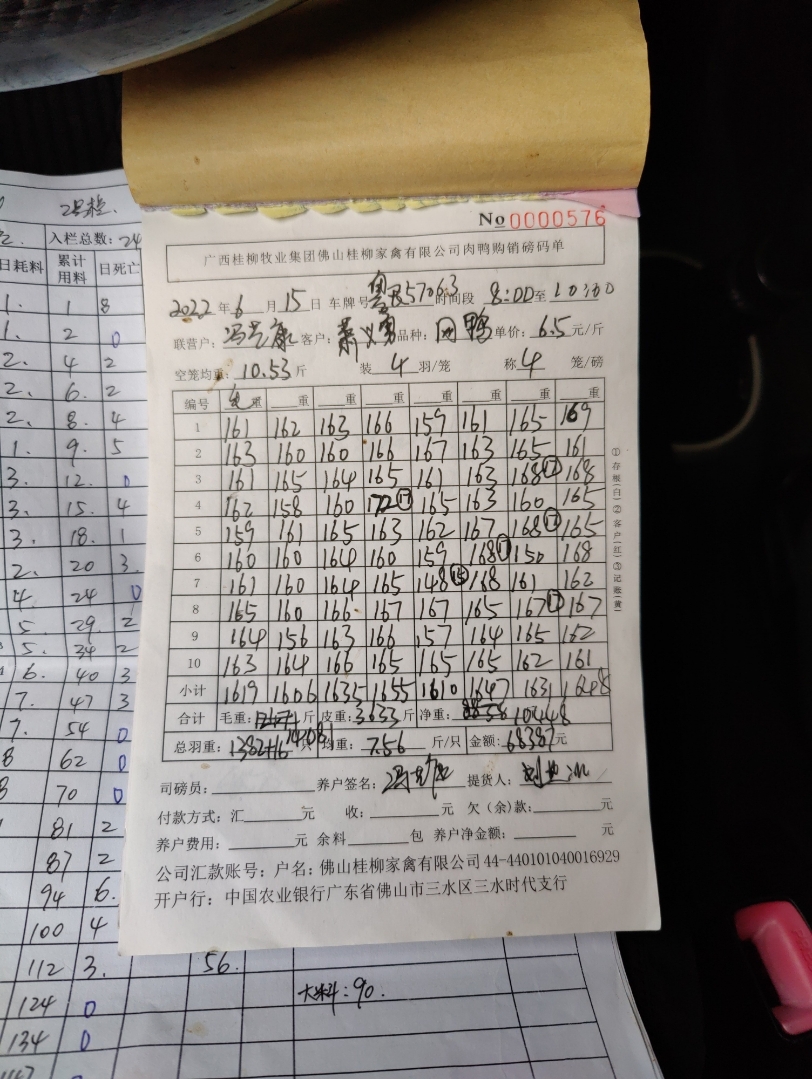 2号栏.
入栏总数: 24
日耗料 累计用料 日死亡
1. 1 8
1. 2 0
2. 4 2
2. 6. 2
2. 8. 4
1. 9. 5
3. 12. 0
3. 15. 4
3. 18. 1
2. 20 3.
4. 24 0
5. 29. 2
5. 34 2
6. 40 3
7. 47 3
7. 54 0
8 62 0
8 70 0
81 2
87 2
94 6.
100 4
112 3. 56.
124 0
134 0
大料: 90.
No 0000576
广西桂柳牧业集团佛山桂柳家禽有限公司肉鸭购销磅码单
2022年6月15日 车牌号 57063 时间段 8:00至10:00
联营户: 客户: 品种: 鸭 单价: 6.5元/斤
空笼均重: 10.53斤 装 4 羽/笼 称 4 笼/磅
编号 毛重 重 重 重 重 重 重 重
1 161 162 163 166 159 161 165 169
2 163 160 160 166 167 163 165 161
3 161 165 164 165 161 163 168⑰ 168
4 162 158 160 172⑰ 165 163 160 165
5 159 161 165 163 162 167 168⑰ 165
6 160 160 164 160 159 168⑰ 150 168
7 161 160 164 165 148⑮ 168 161 162
8 165 160 166 167 167 165 167⑰ 167
9 164 156 163 166 157 164 165 162
10 163 164 166 165 165 165 162 161
小计 1619 1606 1635 1655 1610 1647 1631 1648
合计 毛重: 斤 皮重: 3633斤 净重: 10448
总羽重: 1382+16 只 均重: 7.56 斤/只 金额: 68387元
司磅员: 养户签名: 提货人:
付款方式: 汇 元 收: 元 欠(余)款: 元
养户费用: 元 余料 包 养户净金额: 元
公司汇款账号: 户名: 佛山桂柳家禽有限公司 44-440101040016929
开户行: 中国农业银行广东省佛山市三水区三水时代支行
①存根(白)②客户(红)③记账(黄)